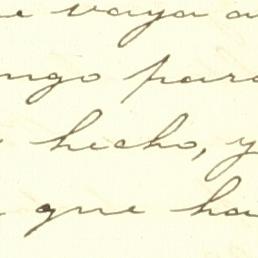 e vaya a
ngo para
hecho, y
que ha